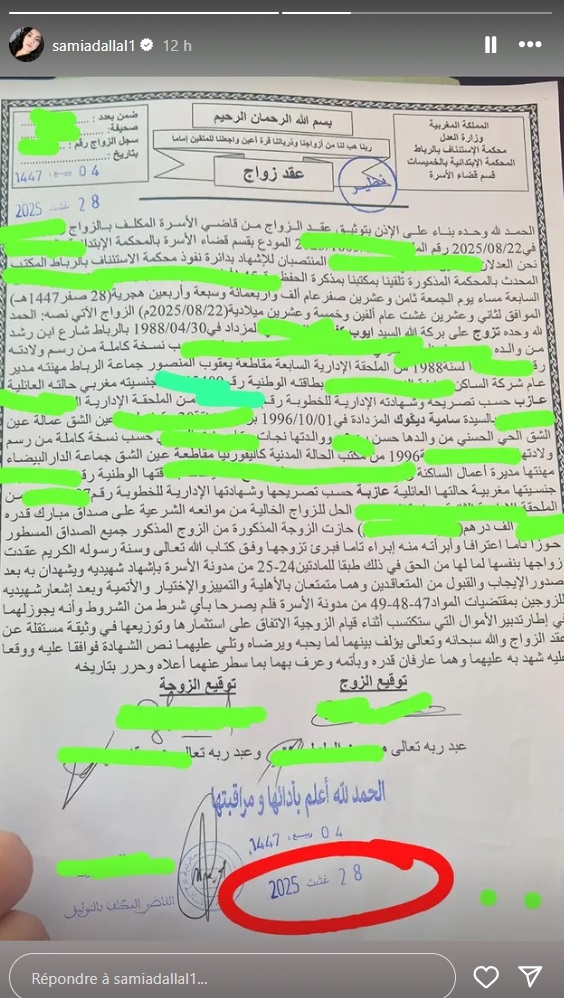 samiadallal1 12 h
المملكة المغربية
وزارة العدل
محكمة الإستئناف بالرباط
المحكمة الإبتدائية بالخميسات
قسم قضاء الأسرة
بسم الله الرحمان الرحيم
ربنا هب لنا من أزواجنا وذرياتنا قرة أعين واجعلنا للمتقين إماما
عقد زواج
نظير
ضمن بعدد :
صحيفة:
سجل الزواج رقم :
بتاريخ:
04 ربيع 1447
28 غشت 2025
الحمد لله وحده بناء على الإذن بتوثيق عقد الزواج من قاضي الأسرة المكلف بالزواج
في2025/08/22 رقم المودع بقسم قضاء الأسرة بالمحكمة
نحن العدلان المنتصبان للإشهاد بدائرة نفوذ محكمة الاستئناف بالرباط المكتب
المحدث بالمحكمة المذكورة تلقينا بمكتبنا بمذكرة الحفظ
السابعة مساء يوم الجمعة ثامن وعشرين صفر عام ألف وأربعمائة وسبعة وأربعين هجرية(28 صفر1447هـ)
الموافق لثاني وعشرين غشت عام ألفين وخمسة وعشرين ميلادية(2025/08/22م) الزواج الآتي نصه: الحمد
لله وحده تزوج على بركة الله السيد أيوب المزداد في1988/04/30 بالرباط شارع ابن رشد
من والده حسب نسخة كاملة من رسم ولادته
لسنة1988 من الملحقة الإدارية السابعة مقاطعة يعقوب المنصور جماعة الرباط مهنته مدير
عام شركة الساكن بطاقته الوطنية رقم جنسيته مغربي حالته العائلية
عازب حسب تصريحه وشهادته الإدارية للخطوبة رقم من الملحقة الإدارية
بالسيدة سامية ديكوك المزدادة في 1996/10/01 عين الشق عمالة عين
الشق الحي الحسني من والدها حسن ووالدتها نجات حسب نسخة كاملة من رسم
ولادتها 1996 من مكتب الحالة المدنية كاليفورنيا مقاطعة عين الشق جماعة الدار البيضاء
مهنتها مديرة أعمال الساكنة الوطنية رقم
جنسيتها مغربية حالتها العائلية عازبة حسب تصريحها وشهادتها الإدارية للخطوبة رقم من
الملحقة الحل للزواج الخالية من موانعه الشرعية على صداق مبارك قدره
ألف درهم( ) حازت الزوجة المذكورة من الزوج المذكور جميع الصداق المسطور
حوزا تاما اعترافا وأبرأته منه إبراء تاما فبرئ تزوجها وفق كتاب الله تعالى وسنة رسوله الكريم عقدت
زواجها بنفسها لما لها من الحق في ذلك طبقا للمادتين24-25 من مدونة الأسرة بإشهاد شهيديه ويشهدان به بعد
صدور الإيجاب والقبول من المتعاقدين وهما متمتعان بالأهلية والتمييزوالإختيار والأتمية وبعد إشعارشهيديه
للزوجين بمقتضيات المواد47-48-49 من مدونة الأسرة فلم يصرحا بأي شرط من الشروط وأنه يجوزلهما
في إطارتدبير الأموال التي ستكتسب أثناء قيام الزوجية الاتفاق على استثمارها وتوزيعها في وثيقة مستقلة عن
عقد الزواج والله سبحانه وتعالى يؤلف بينهما لما يحبه ويرضاه وتلي عليهما نص الشهادة فوافقا عليه ووقعا
عليه شهد به عليهما وهما عارفان قدره وبأتمه وعرف بهما بما سطر عنهما أعلاه وحرر بتاريخه
توقيع الزوج توقيع الزوجة
عبد ربه تعالى وعبد ربه تعالى
الحمد لله أعلم بأدائها و مراقبتها
04 ربيع 1447
28 غشت 2025
القاضي المكلف بالتوثيق
Répondre à samiadallal1...